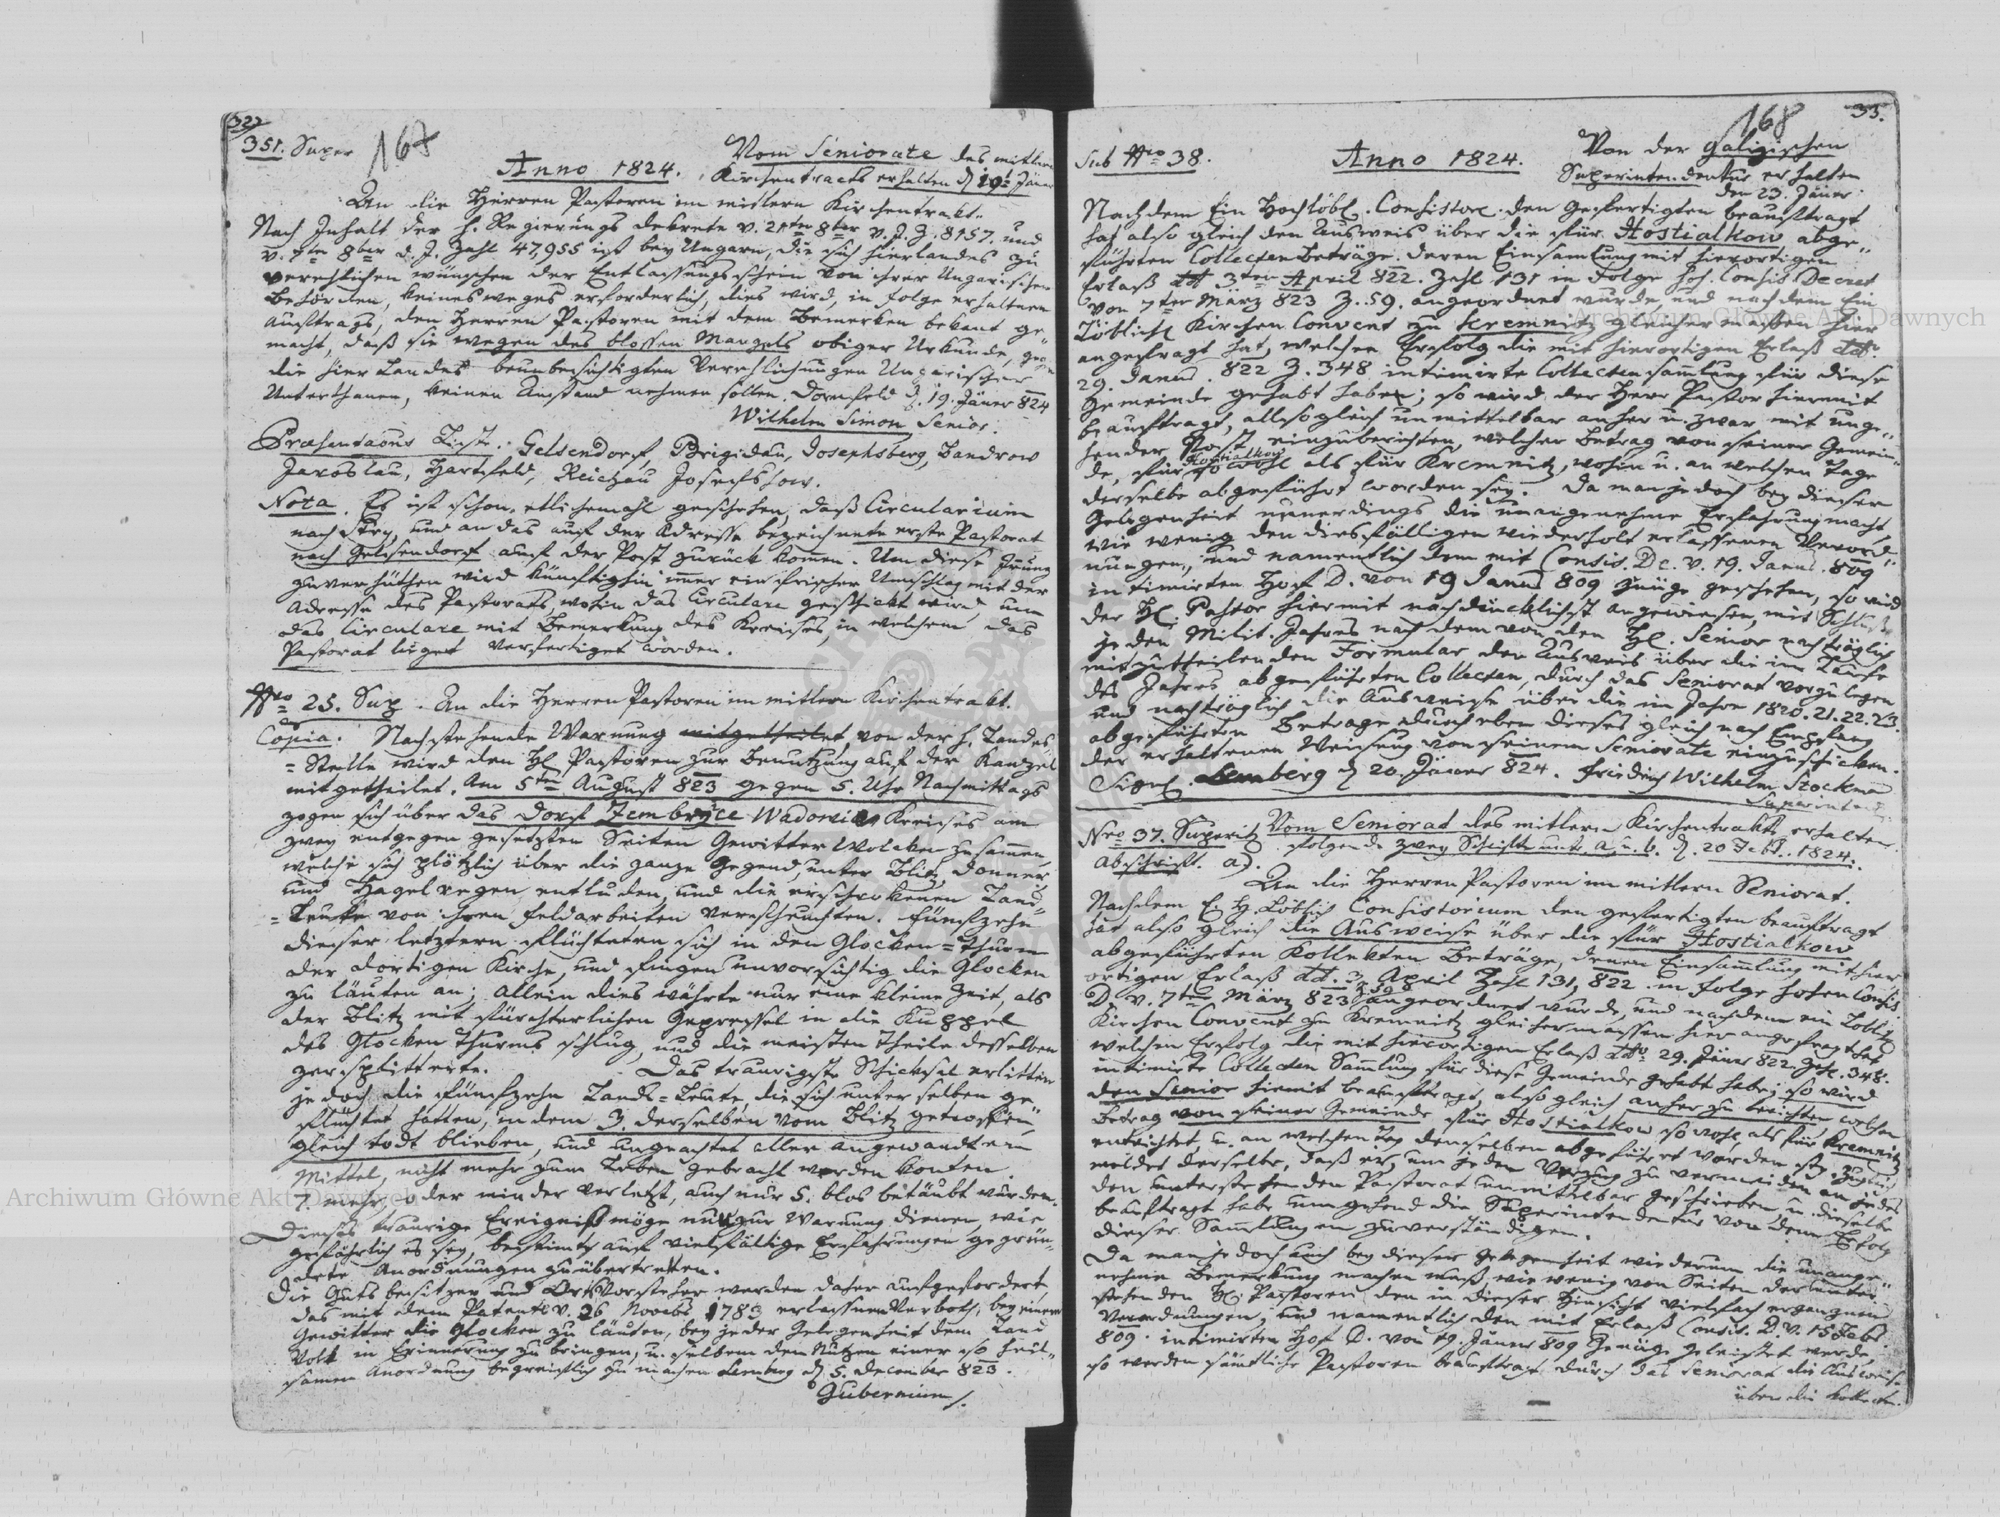 322
351. Super 167
Anno 1824. Vom Seniorate des mittlern
Kirchentracts erhalten d 19t Jäner
An die Herren Pastoren im mittlern Kirchentrakt.
Nach Inhalt der h. Regierungs dekrete v. 21ten 8ber v. J. Z. 8157. und
v. 7ten 8ber d. J. Zahl 47,955 ist bey Ungarn, die sich hierlandes zu
verehlichen wünschen der Entlassungsschein von ihrer Ungarischen
Behörden, keinesweges erforderlich, dies wird, in folge erhaltenen
Auftrags, den Herren Pastoren mit dem Bemerken bekant ge-
macht, daß sie wegen des blossen Mangels obiger Urkunde, gegen
die hier Landes beabsichtigten Verehlichungen Ungarischer
Unterthanen, keinen Anstand nehmen sollen. Dornfeld d. 19. Jäner 824
Wilhelm Simon Senior.
Praesentaous Liste: Gelsendorf, Brigidau, Josephsberg, Bandrow
Jaroslau, Hartfeld, Reichau Josefslow.
Nota. Es ist schon etlichemahl geschehen, daß Circularium
nach Stry, und an das auf der Adresse bezeichnete erste Pastorat
nach Gelsendorf auf der Post zurück komen. Um diese Irung
zu verhüthen wird künftighin imer ein frischer Umschlag mit der
Adresse des Pastorats, wohin das Circulare geschickt wird um
das Circulare mit Bemerkung des Kreises, in welchem das
Pastorat lieget verfertiget werden.
Nro 25. Sup. An die Herren Pastoren im mittlern Kirchentrakt.
Copia. Nachstehende Warnung mitgetheilet von der h. Landes
= Stelle wird den H Pastoren zur Benutzung auf der Kanzel
mitgetheilet. Am 5ten August 823 gegen 5. Uhr Nachmittags
zogen sich über das Dorf Zembrzice Wadowicer Kreises am
zwey entgegen gesetzten Seiten Gewitter Wolcken zusammen,
welche sich plötzlich über die ganze Gegend, unter Blitz, Donner
und Hagelregen entluden, und die erschrokenen Land-
= Leuthe von ihren Feldarbeiten verscheuchten. Fünfzehn
dieser letztern flüchteten sich in den Glocken = Thurm
der dortigen Kirche, und fingen unvorsichtig die Glocken
zu läuten an; allein dies währte nur eine kleine Zeit, als
der Blitz mit fürchterlichen Geprassel in die Kuppel
des Glocken Thurms schlug, und die meisten Theile desselben
zersplitterte. Das traurigste Schicksal erlitten
jedoch die fünfzehn Lands = Leute, die sich unter selben ge-
flüchtet hatten, indem 3. derselben vom Blitz getroffen,
gleich todt blieben, und ungeachtet aller angewandten
Mittel, nicht mehr zum Leben gebracht werden konten
7. mehr, oder minder verletzt, auch nur 5. blos betäubt wurden.
Dieses traurige Ereigniß möge nur zur Warnung dienen, wie
gefährlich es sey, auf vielfältige Erfahrungen gegrün-
dete Anordnungen zu übertretten.
Die Guts besitzer und Orts Vorsteher werden daher aufgefordert,
das mit dem Patente v. 26 Novebr 1783 erlassene Verboth, bey einem
Gewitter die Glocken zu läuten, bey jeder Gelegenheit dem Land
Volk in Erinnerung zu bringen, u. selbem den Nutzen einer so heil-
samen Anordnung begreiflich zu machen Lemberg d. 5. December 823.
Gubernium
168 33.
Sub Nro 38. Anno 1824. Von der Galizischen
Superintendentur erhalten
den 23. Jäner.
Nachdem Ein Hochlöbl. Consistor. den gefertigten beauftragt
hat also gleich den Ausweis über die für Hostialkow abge-
führten Collecten Beträge, deren Einsamlung mit hierortigen
Erlaß dd 3ten April 822. Zahl 131 in Folge hoh. Consis Decret
von 7ten März 823 Z. 59. angeordnet wurde, und nachdem Ein
Löblich Kirchen Convent zu Kremnitz gleichermaßen hier
angefragt hat, welchen Erfolg die mit hierortigen Erlaß ddo
29. Januar 822 Z. 348 intimirte Collectensamlung für diese
Gemeinde gehabt haben; so wird der Herr Pastor hiermit
beauftragt, allsogleich unmittelbar anher u. zwar mit umge-
hender Post einzuberichten, welcher Betrag von seiner Gemein-
de, für Hostialkow sowohl als für Kremnitz, wohin u. an welchen Tage
derselbe abgeführt worden sey. Da man jedoch bey dieser
Gelegenheit neuerdings die unangenehme Erfahrung macht,
wie wenig den diesfälligen wiederholt erlassenen Verord-
nungen, und namentlich dem mit Consis. Dc. v. 19. Janu. 809
intimirten Hof D. von 19 Janu 809 Gnüge geschehen, so wird
der H. Pastor hiermit nachdrücklichst angewiesen, mit Schluße
jeden Milit. Jahres nach dem von den H. Senior nachträglich
mitzutheilenden Formular den Ausweis über die im Laufe
des Jahres abgeführten Collecten, durch das Seniorat vorzulegen
und nachträglich die Ausweise über die im Jahre 1820. 21. 22. 23.
abgeführten Betrage durch eben dieses gleich nach Empfang
der erhaltenen Weisung von seinem Seniorate einzuschicken.
Sign. Lemberg d 20. Jäner 824. Fridrich Wilhelm Stockman
Superintend
Nro 37. Superitz Vom Seniorat des mitlern Kirchentrakts erhalten
folgende zwey Schriften a. u. b. d. 20 Feb. 1824.
Abschrift. a).
An die Herren Pastoren im mitlern Seniorat.
Nachdem E. H. Löblich Consistorium den gefertigten beauftragt
hat also gleich die Ausweise über die für Hostialkow
abgeführten Kollekten Beträge, deren Einsamlung mit hier-
ortigen Erlaß dd. 3 April Zahl 131, 822 in Folge hohen Consis.
D. v. 7ten März 823 Z 59 angeordnet wurde, und nachdem ein Löblich
Kirchen Convent zu Kremnitz gleichermassen hier angefragt hat
welchen Erfolg die mit hierortigen Erlaß ddo 29. Jäner 822 Zahl. 348.
intimirte Collecten Samlung für diese Gemeinde gehabt habe; so wird
den Senior hiemit beauftragt, also gleich anher zu berichten, welchen
Betrag von seiner Gemeinde für Hostialkow so wohl als für Kremnitz
entrichtet, u. an welchen Tag denselben abgeführet worden sey. Zugleich
meldet derselbe, daß er, um jeden Verzug zu vermeiden an jedes
den unterstehenden Pastorat unmittelbar geschrieben u. dieselbe
beauftragt habe umgehend die Superintendentur von dem Erfolg
dieser Samlungen zu verständigen.
Da man jedoch auch bey dieser Gelegenheit wiederum die unange-
nehme Bemerkung machen muß, wie wenig von Seiten der unter-
stehenden H. Pastoren den in dieser Hinsicht vielfach ergangenen
Verordnungen, und namentlich den mit Erlaß Consis. D. v. 15 Febr
809. intimirten Hof D. von 19. Jäner 809 Genüge geleistet werde,
so werden sämtliche Pastoren beauftragt durch das Seniorat die Ausweise
über die Kollecten.
Archiwum Główne Akt Dawnych
Archiwum Główne Akt Dawnych